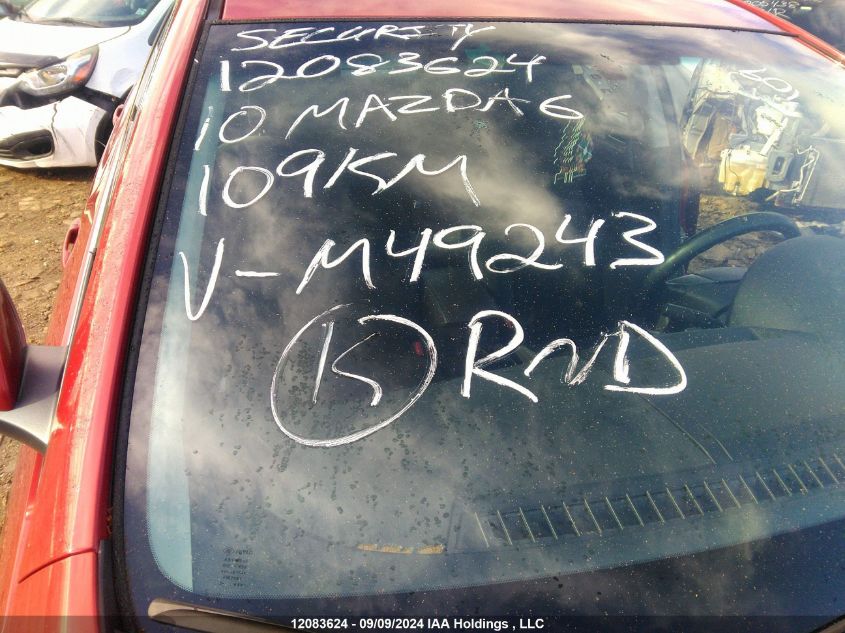 SECURITY
12083624
10 MAZDA 6
109KM
V-M49243
K RND
12083624 - 09/09/2024 IAA Holdings , LLC